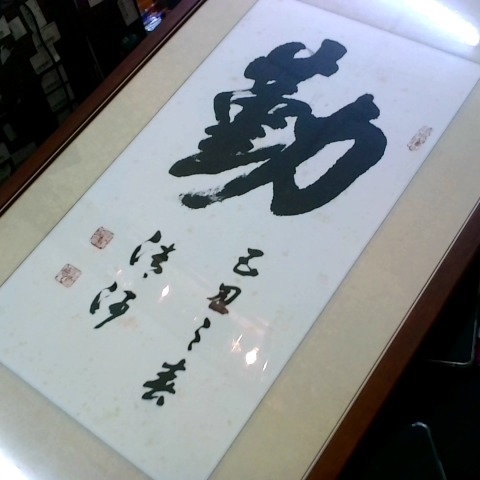 勤
己丑之春
清河